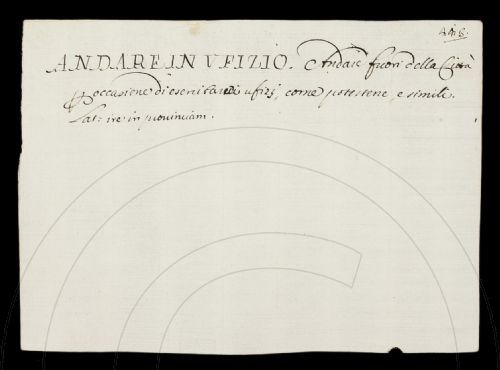 448.
ANDARE IN VFIZIO. Andare fuori della Città
p occasione di esercitare ufizj, come potesterie, e simili.
Lat: ire in provinciam.